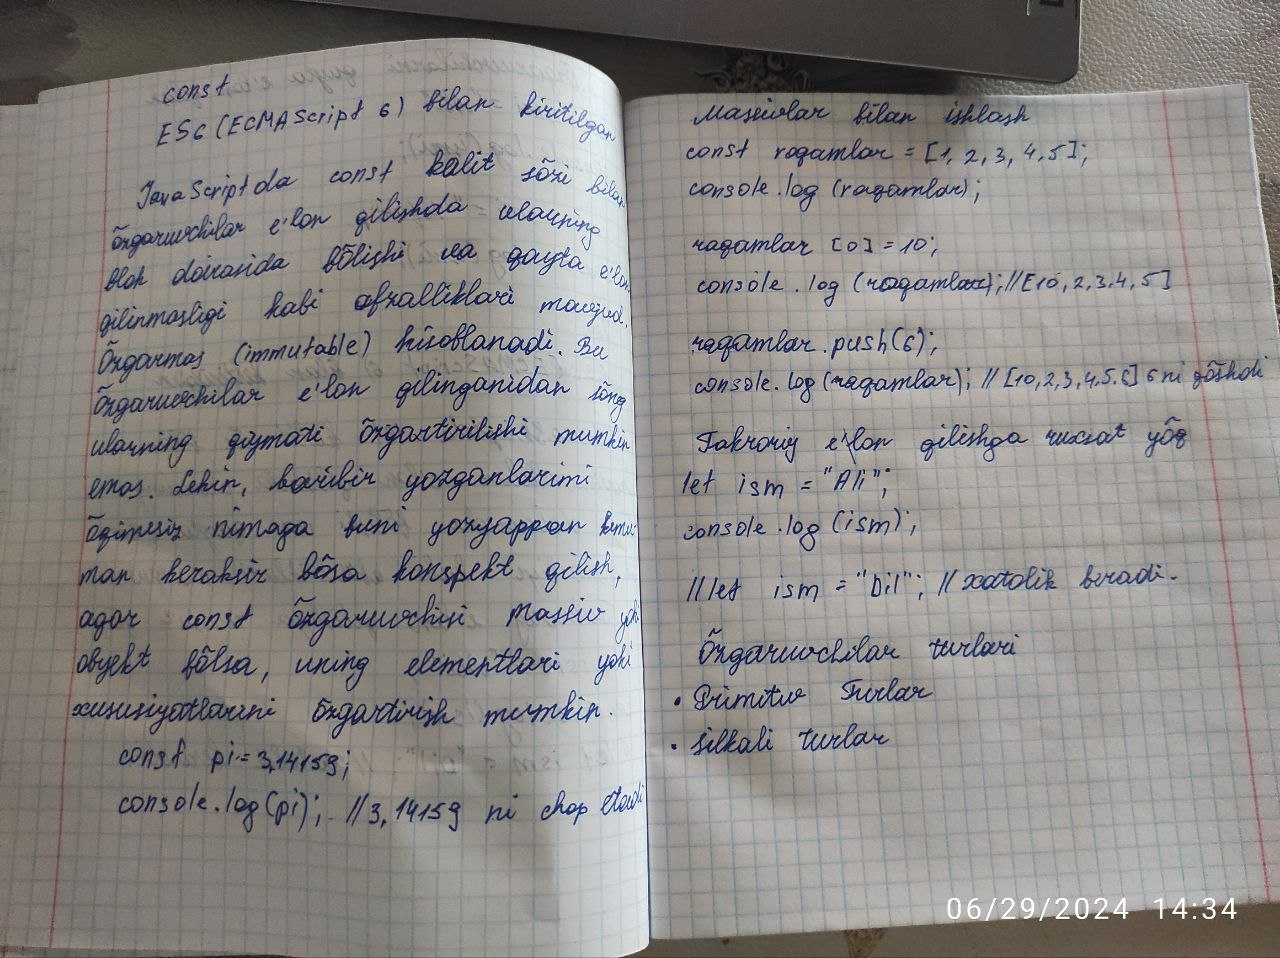 const
ES6 (ECMAScript 6) bilan kiritilgan
JavaScriptda const kalit sõzi bilan
õzgaruvchilar e'lon qilishda ularning
blok doirasida bõlishi va qayta e'lon
qilinmasligi kabi afzalliklari mavjud.
Õzgarmas (immutable) hisoblanadi. Bu
õzgaruvchilar e'lon qilinganidan sõng
ularning qiymati õzgartirilishi mumkin
emas. Lekin, baribir yozganlarimi
õqimisiz nimaga buni yozyappan
man keraksiz bõsa konspekt qilish,
agar const õzgaruvchisi massiv yoki
obyekt bõlsa, uning elementlari yoki
xususiyatlarini õzgartirish mumkin.
const pi = 3,14159;
console.log(pi); //3,14159 ni chop etadi
Massivlar bilan ishlash
const raqamlar = [1, 2, 3, 4, 5];
console.log (raqamlar);
raqamlar [0] = 10;
console.log (raqamlar); //[10, 2, 3, 4, 5]
raqamlar.push(6);
console.log (raqamlar); // [10,2,3,4,5.6] 6 ni qõshdi
Takroriy e'lon qilishga ruxsat yõq
let ism = "Ali";
console.log (ism);
//let ism = "Dil"; // xatolik beradi.
Õzgaruvchilar turlari
• Primitiv Turlar
• silkali turlar
06/29/2024 14:34